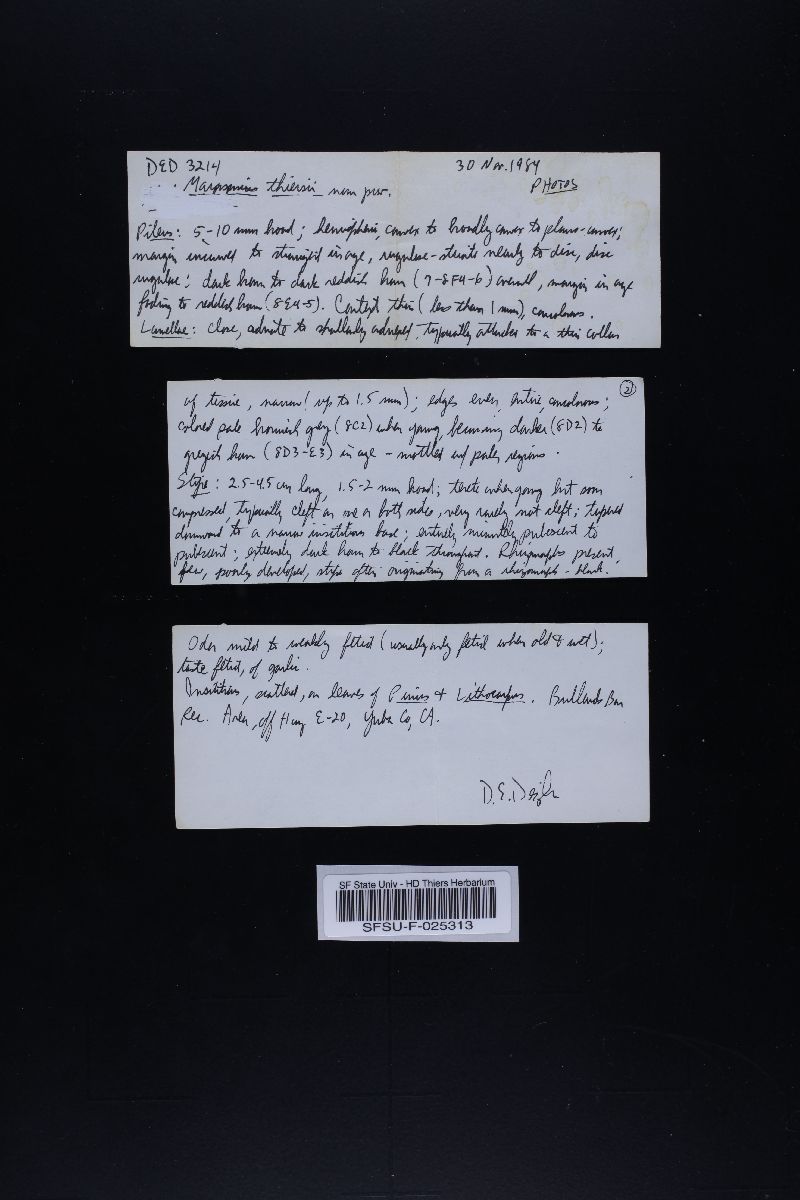 DED 3214 30 Nov. 1984
Marasmius thiersii nom prov. PHOTOS
Pileus: 5-10 mm broad; hemispheric, convex to broadly convex to plano-convex;
margin incurved to straight in age, rugulose-striate nearly to disc, disc
rugulose; dark brown to dark reddish brown (7-8F4-6) overall, margin in age
fading to reddish brown (8E4-5). Context thin (less than 1 mm), concolorous.
Lamellae: close, adnate to shallowly adnexed, typically attached to a thin collar
②
of tissue, narrow (up to 1.5 mm); edges even, entire, concolorous;
colored pale brownish grey (8C2) when young, becoming darker (8D2) to
greyish brown (8D3-E3) in age - mottled w/ paler regions.
Stipe: 2.5-4.5 cm long, 1.5-2 mm broad; terete when young but soon
compressed typically cleft on one or both sides, very rarely not cleft; tapered
downward to a narrow insititious base; entirely minutely pubescent to
pubescent; extremely dark brown to black throughout. Rhizomorphs present,
few, poorly developed, stipe often originating from a rhizomorph - black.
Odor mild to weakly fetid (usually only fetid when old & wet);
taste fetid, of garlic.
Insititious, scattered, on leaves of Pinus & Lithocarpus. Bullards Bar
Rec. Area, off Hwy E-20, Yuba Co, CA.
D.E. Desjardin
SF State Univ - HD Thiers Herbarium
SFSU-F-025313